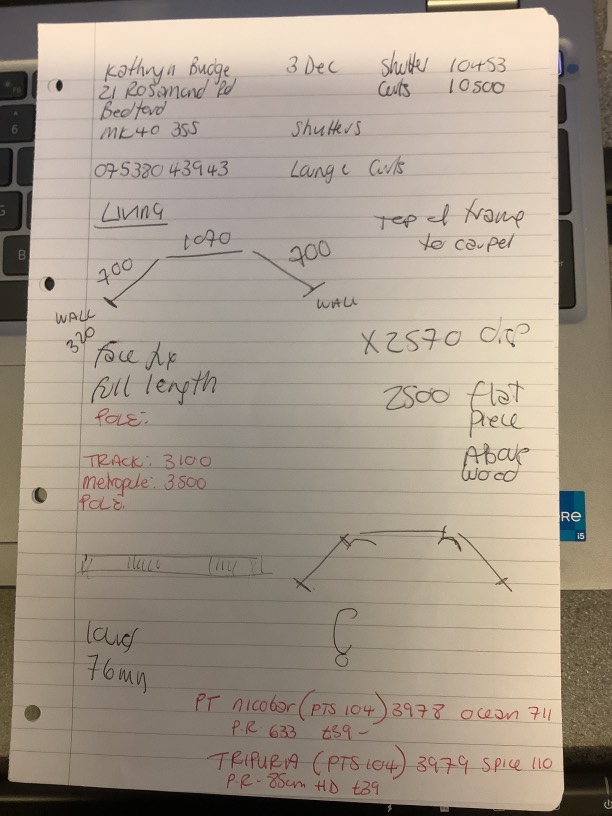 Kathryn Budge 3 Dec Shutter 10453
21 Rosamond Rd Curts 10500
Bedford
MK40 3SS Shutters
07538043943 Lounge Curts
Living
Top of frame
to carpet
700 1070 700
WALL WALL
320
Face fix
full length
X2570 drop
2500 flat
piece
Above
wood
POLE:
TRACK: 3100
Metropole: 3500
POLE:
76mm
PT nicobar (PTS 104) 3978 ocean 711
P.R 633 £39-
TRIPURIA (PTS 104) 3979 spice 110
P.R- 85cm HD £39
RE
i5
6
B